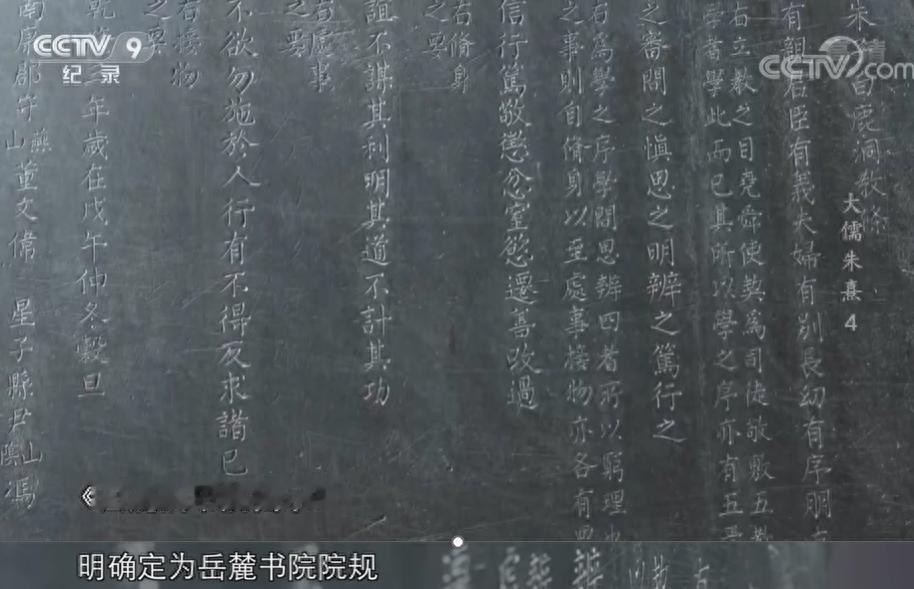 CCTV 9
纪录
CCTV.com
大儒朱熹 4
朱 白鹿洞教條
有親君臣有義夫婦有別長幼有序朋
右立教之目堯舜使契為司徒敬敷五教
學者學此而已其所以學之序亦有五焉
之審問之慎思之明辨之篤行之
右為學之序學問思辨四者所以窮理也
之事則自脩身以至處事接物亦各有
信行篤敬懲忿窒慾遷善改過
右脩身
之要
誼不謀其利明其道不計其功
右處事
之要
不欲勿施於人行有不得反求諸己
右接物
之要
乾 三年歲在戊午仲冬穀旦
南康郡守燕山董文偉 星子縣尹 山陰馮
明确定为岳麓书院院规